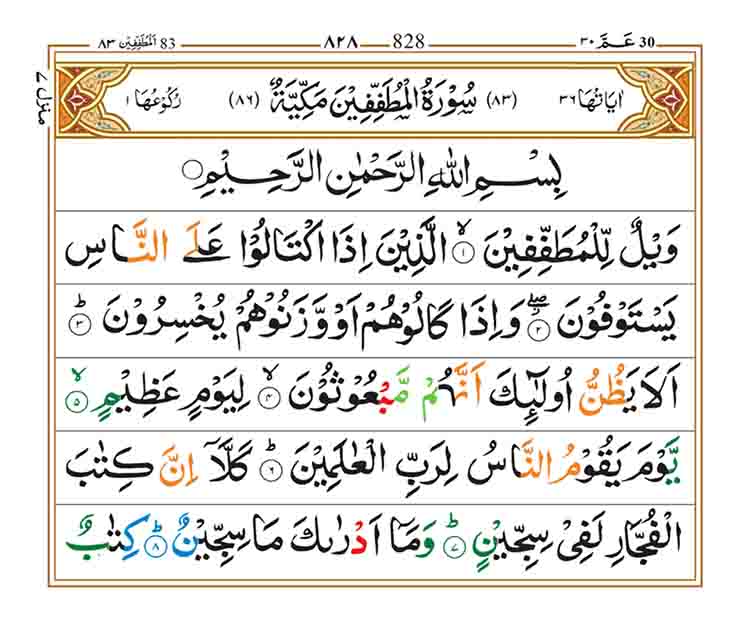 30 عَمَّ ٣٠ 828 ٨٢٨ 83 اَلْمُطَفِّفِيْن ٨٣
منزل ٧
اٰيَاتُهَا ٣٦ (٨٣) سُوْرَةُ الْمُطَفِّفِيْنَ مَكِّيَّةٌ (٨٦) رُكُوْعُهَا ١
بِسْمِ اللّٰهِ الرَّحْمٰنِ الرَّحِيْمِ ○
وَيْلٌ لِّلْمُطَفِّفِيْنَ ۙ ١ الَّذِيْنَ اِذَا اكْتَالُوْا عَلَى النَّاسِ
يَسْتَوْفُوْنَ ۖ ٢ وَاِذَا كَالُوْهُمْ اَوْ وَّزَنُوْهُمْ يُخْسِرُوْنَ ؕ ٣
اَلَا يَظُنُّ اُولٰٓئِكَ اَنَّهُمْ مَّبْعُوْثُوْنَ ۙ ٤ لِيَوْمٍ عَظِيْمٍ ۙ ٥
يَّوْمَ يَقُوْمُ النَّاسُ لِرَبِّ الْعٰلَمِيْنَ ؕ ٦ كَلَّاۤ اِنَّ كِتٰبَ
الْفُجَّارِ لَفِيْ سِجِّيْنٍ ؕ ٧ وَمَاۤ اَدْرٰىكَ مَا سِجِّيْنٌ ؕ ٨ كِتٰبٌ